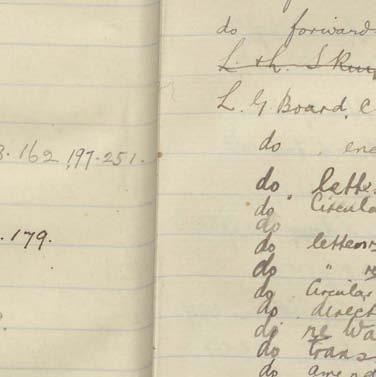 162 197. 251.
. 179.
do forward
L. G Board, C
do , enc
do lette
do " Circula
do
do letter
do " re
do Circular
do direct
do re Wa
do trans
do amend